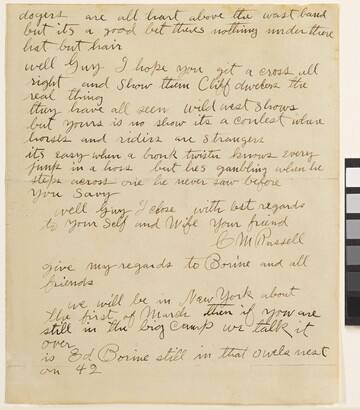 dogers are all hart above the wast band
but its a good bet theres nothing under there
hat but hair
well Guy I hope you get a cross all
right and show them Cliff dwelers the
real thing
they have all seen wild west shows
but yours is no show its a contest where
horses and riders are strangers
its easy when a bronk twister knows every
jump in a hoss but hes gambling when he
steps across one he never saw before
you Savy
well Guy I close with best regards
to your Self and Wife Your friend
C M Russell
give my regards to Borine and all
friends
we will be in New York about
the first of March then if you are
still in the big camp we talk it
over
is Ed Borine still in that owels nest
on 42